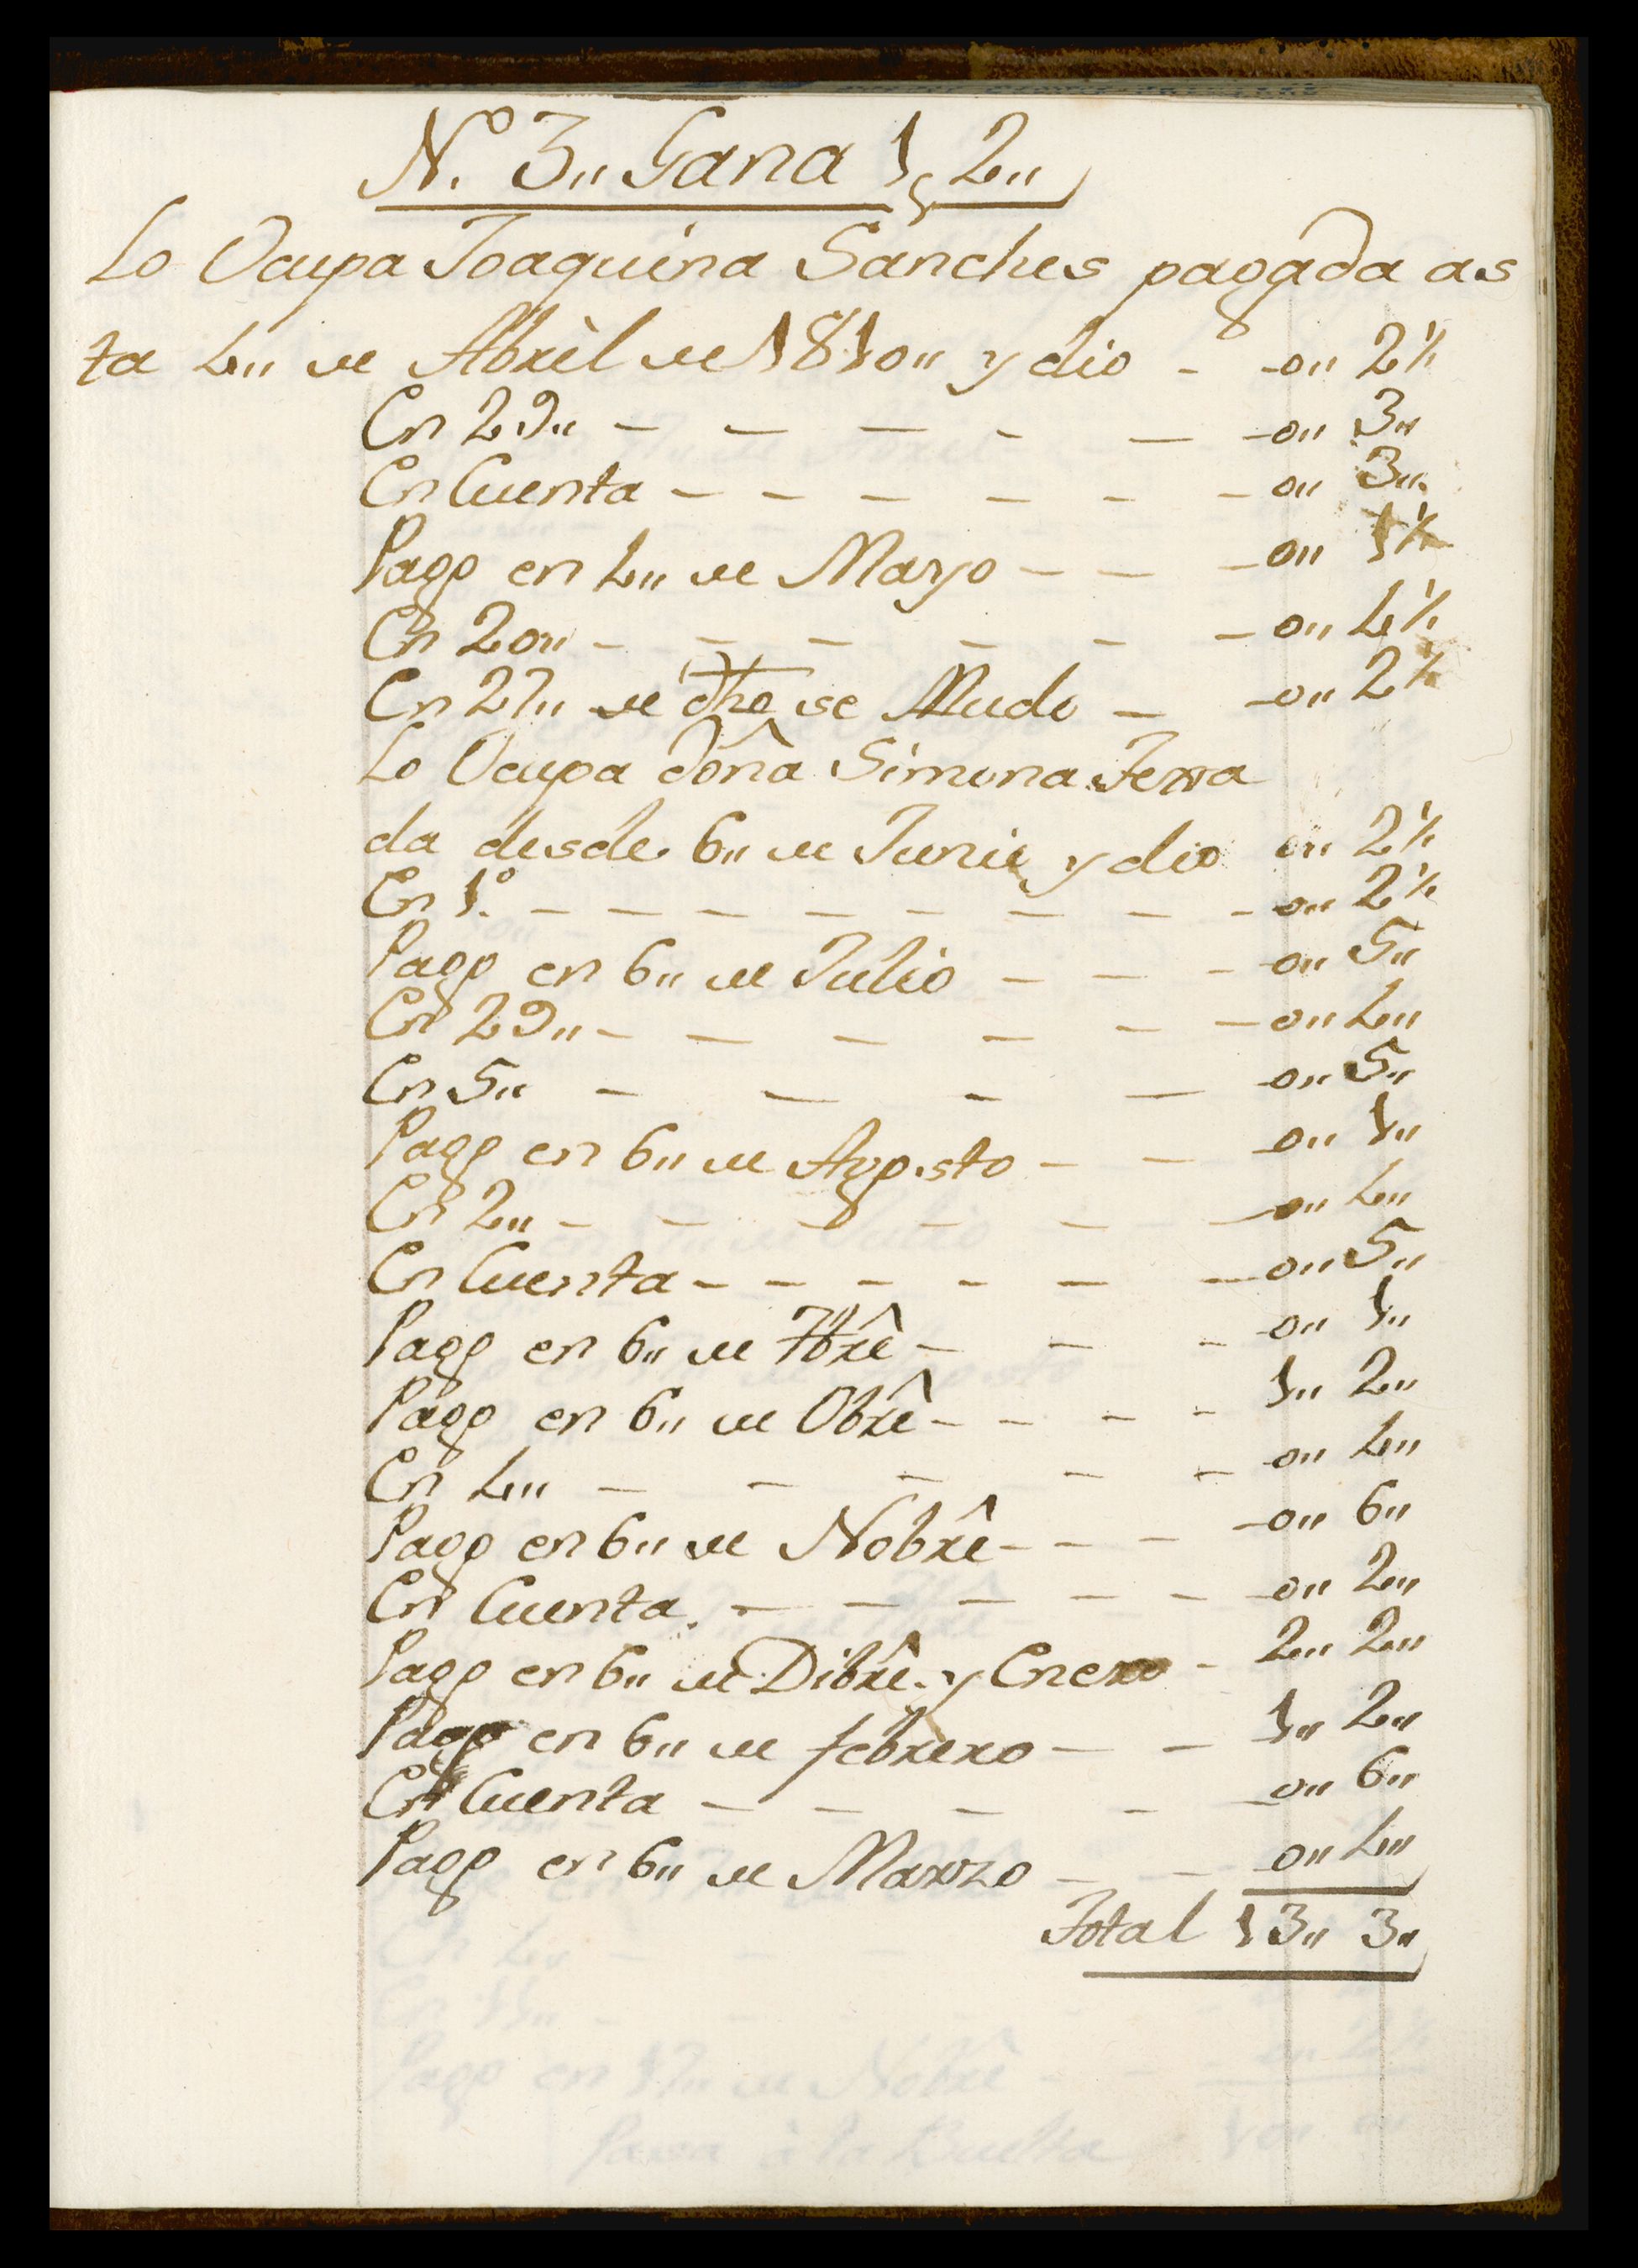 N.º 3,, Gana 1,, 2,,
Lo Ocupa Joaquina Sanches pagada as
ta 4,, de Abril de 1810,, y dio - 0,, 2½
En 29,, - - - - - 0,, 3,,
En Cuenta - - - - - - 0,, 3,,
Pago en 4,, de Mayo - - - 0,, 1½
En 20,, - - - - - - 0,, 4½
En 27,, de dho se Mudo - 0,, 2½
Lo Ocupa doña Simona Ferra
da desde 6,, de Junio y dio 0,, 2½
En 1.º - - - - - - - - - 0,, 2½
Pago en 6,, de Julio - - - 0,, 5,,
En 29,, - - - - - - 0,, 4,,
En 5,, - - - - 0,, 5,,
Pago en 6,, de Agosto - - 0,, 1,,
En 2,, - - - - - - 0,, 4,,
En Cuenta - - - - - - 0,, 5,,
Pago en 6,, de 7brê - - - 0,, 1,,
Pago en 6,, de Obrê - - - - 1,, 2,,
En 4,, - - - - - 0,, 4,,
Pago en 6,, de Nobrê - - - 0,, 6,,
En Cuenta. - - - - - 0,, 2,,
Pago en 6,, de Dibrê. y Enero - 2,, 2,,
Pago en 6,, de febrero - - 1,, 2,,
En Cuenta - - - - - 0,, 6,,
Pago en 6,, de Marzo - - 0,, 4,,
Total 13,, 3,,